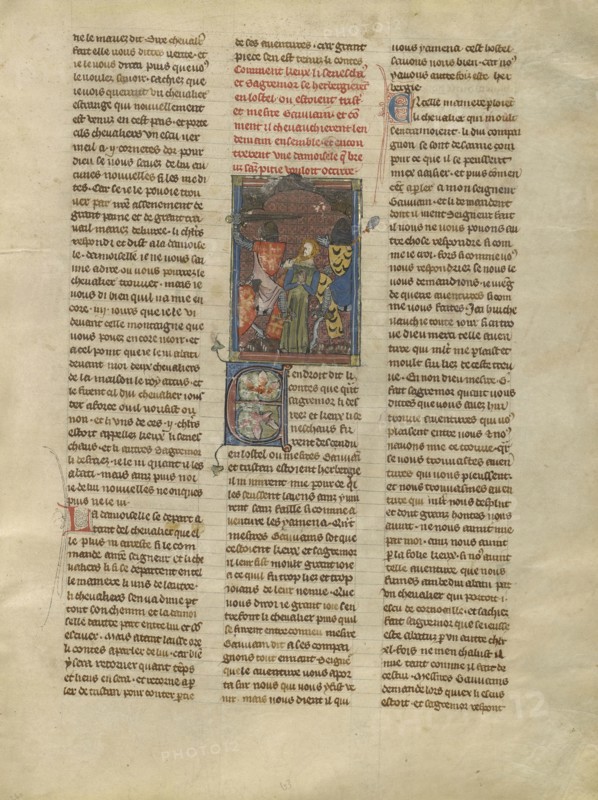 ne le mauez dit Sire cheualr
fait elle uous dittes uerite et
ie le uous dirai puis que uos
le uoulez sauoir sachez que
ie uois querant un cheualier
estrange qui nouuelement
est uenuz en cest pais et porte
cils cheualiers un escu uer
meil a cornetes dor pour
dieu se uous sauez de lui au
cunes nouuelles si les me di
tes Car se ie le pouoie trou
uer par mon assenement de
grant painne et de grant tra
uail mauez deliuree li chlrs
respondi et dist a la damoise
le damoisele ie ne uous sai
mie a dire ou uous pourrez le
cheualier trouuer mais ie
uous di bien quil na mie en
core iours que ie le ui
deuant celle montaigne que
uous poues encore ueoir et
a cel point que ie le ui abati
deuant moi deux cheualiers
de la maison le roy artus et
le firent al dui cheualier tout
uousist ou
non et li uns de ces chlrs
estoit appellez keux li senes
chaus et li autres sagremor
li desreez ie le ui quant il les
abati mais ainz puis noi
ie de lui nouuelles ne onques
puis ne le ui
La damoiselle se depart a
tant del cheualier que el
le plus ni arreste si le com
mande a nostre seigneur et li che
ualiers li si se departent en tel
le maniere li uns de lautre
li cheualiers sen ua dune part
tout son chemin et la damoi
selle dautre part entre lui et son
escuier Mais atant laisse ore
li contes a parler de lui car bien
y sera retourner quant temps
et lieus en sera et retorne a par
ler de tristan pour conter partie
de ses auentures car grant
piece sen est tenuz li contes
Comment keux li seneschaus
et sagremor se herbergierent
en lostel ou estoient tristan
et mesire Gauuain et com
ment il cheuaucherent len
demain ensemble et encon
trerent une damoiselle que bre
us sanz pitie uouloit occirre
En cil endroit dit li
contes que quant
sagremor li des
reez et keux li se
neschaus fu
rent descendu
en lostel ou mesires Gauuain
et tristan estoient herbergie
il nuirent mie pour ce quil
les seussent laiens ainz y uin
rent sanz faille si comme a
uenture les y amena Quant
mesires Gauuains sot que
cestoient keux et sagremor
il leur fist moult grant ioie
a ce quil fu trop liez et trop
ioians de leur uenue Que
uous diroie grant ioie sen
trefont li cheualier puis quil
se furent entreconneu mesire
Gauuain dit a ses compai
gnons tout en riant Seigneurs
quele auenture uous apor
ta sur nous qui uous y fist ve
nir mais nous dient il qui
uous y amena cest hostel
sauons nous bien car nous
y auons autre fois este her
bergie
En celle maniere ploient
li cheualier qui moult
sentramoient li dui compai
gnon se sont desarme com
pour ce que il se peussent
miex aaisier et puis comen
cent a parler a mon seigneur
Gauuain et li demandent
dont il uient Seigneur fait
il uous ne uous pouons au
tre chose respondre si com
me ie croi fors si comme uous
nous respondriez se nous le
uous demandions ie uieng
de querre auentures si com
me uous faites Iai cheuauche
hui toute iour si a trou
ue dieu merci telle auen
ture qui mlt me plaist et
moult sui liez de ceste trou
ue En non dieu mesire G
fait sagremor quant uous
dittes que uous auez hui
trouue auentures qui uous
plaisent entre uous et nous
nauons mie ce trouue car
se uous trouuastes auen
tures qui uous pleussent
et nous trouuasmes auen
ture qui mlt nous desplut
et dont grant hontes nous
auint ne nous auint mie
par moi ainz nous auint
par la folie keux si nous auint
telle auenture que nous
fumes ambedui abatu par
un cheualier qui portoit i
escu de cornouaille et sachez
fait sagremor que se ieusse
este abatuz par un autre cheua
lier fors ne men chalust il
mie tant comme il fait de
cestui Mesires Gauuains
demande lors quiex li escus
estoit et sagremor respont